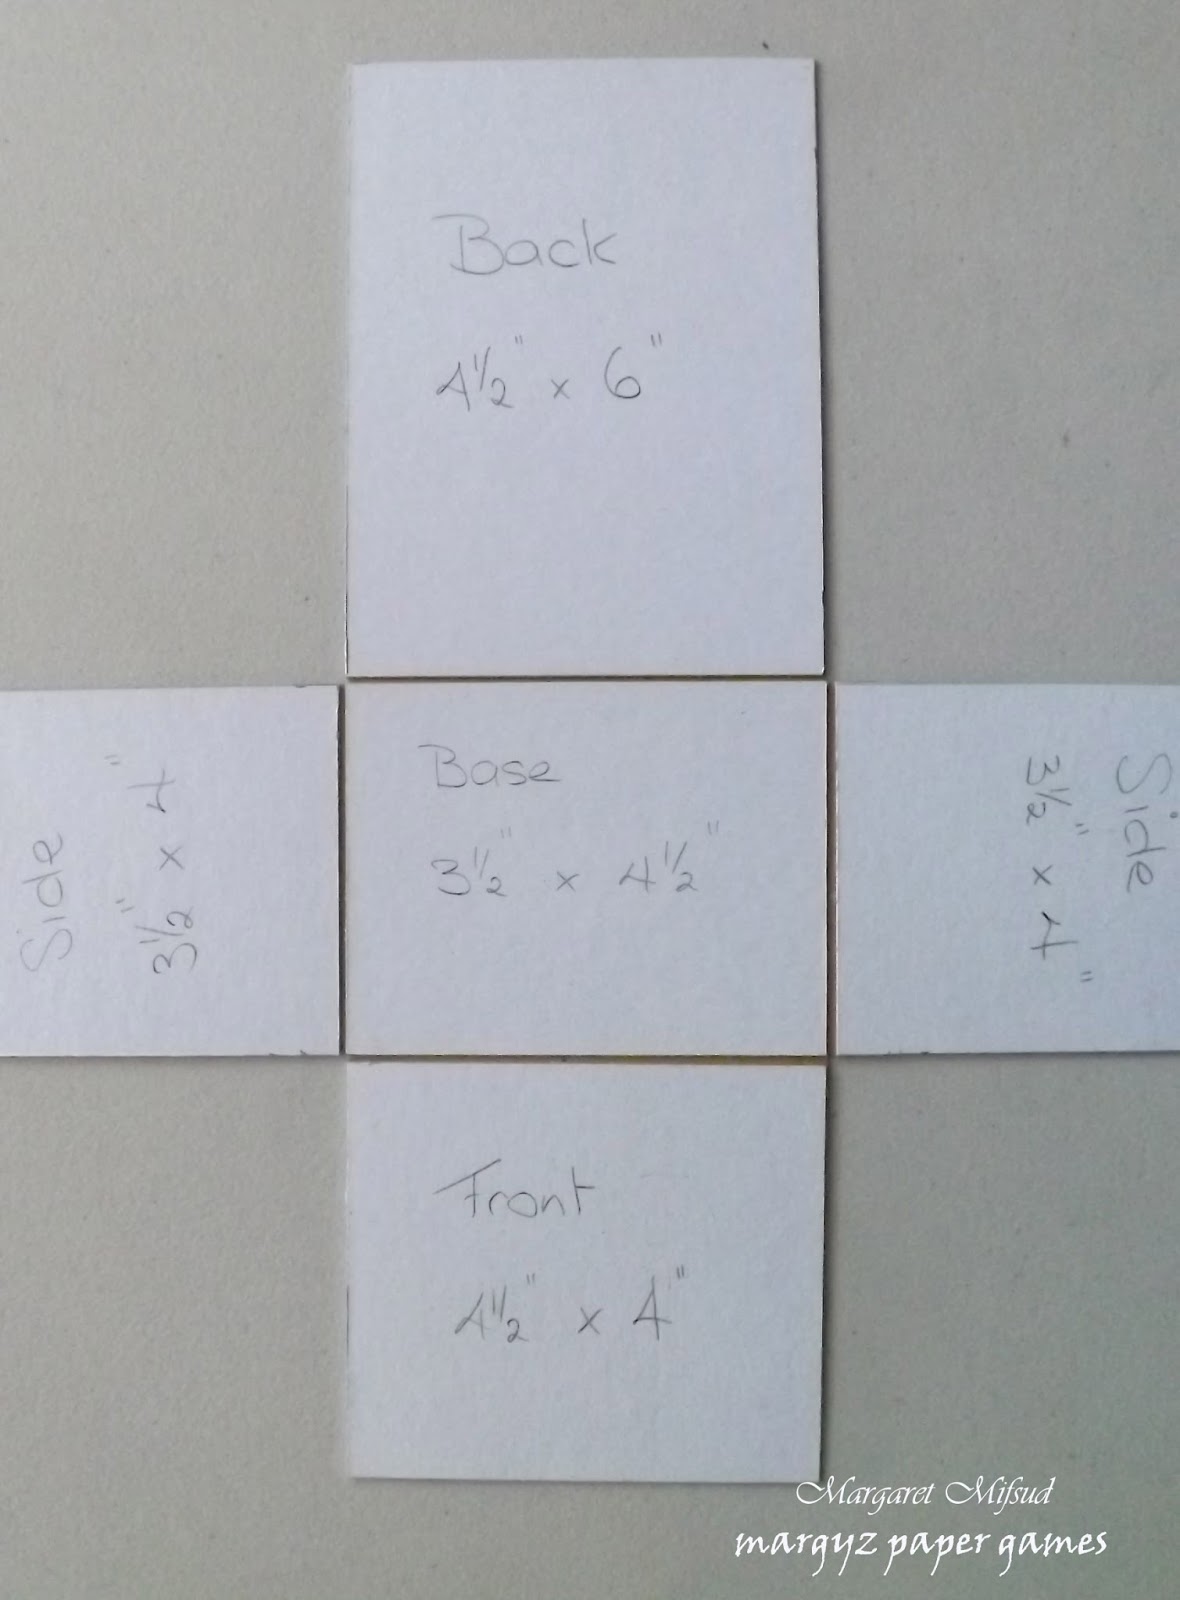 Back
4 1/2" x 6"
Side
3 1/2" x 4"
Base
3 1/2" x 4 1/2"
Side
3 1/2" x 4"
Front
4 1/2" x 4"
Margaret Mifsud
margyz paper games